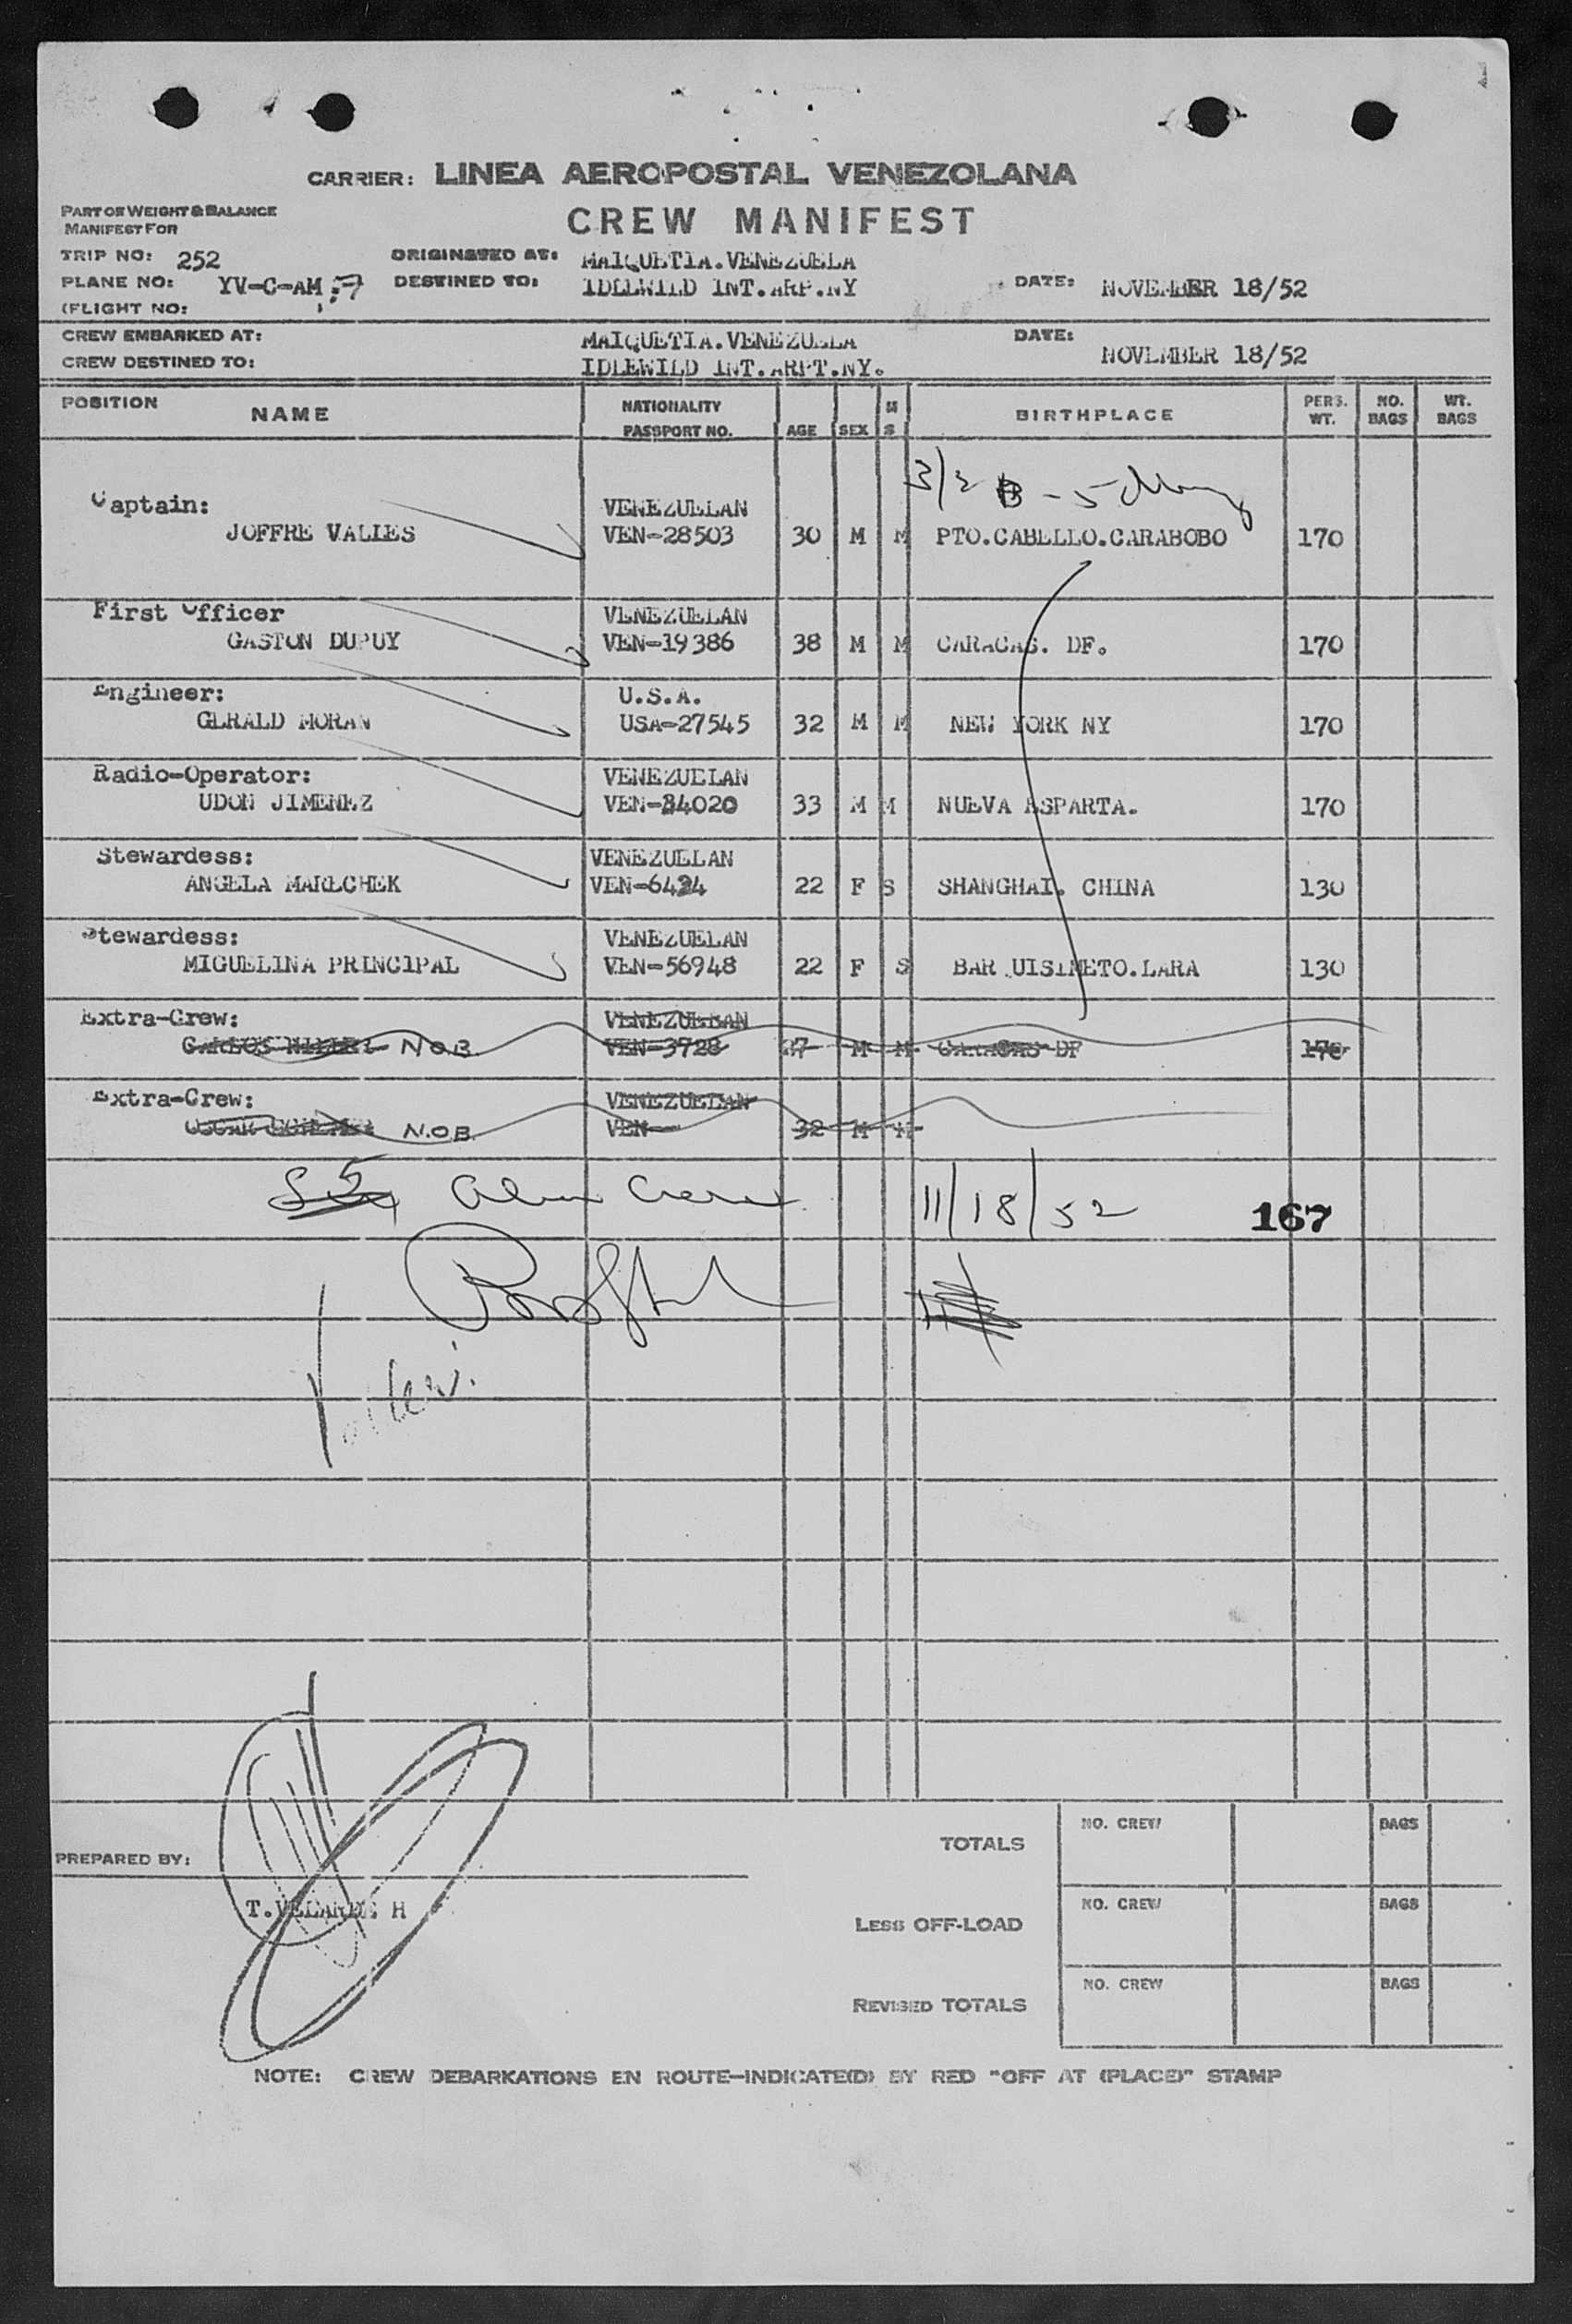 CARRIER: LINEA AEROPOSTAL VENEZOLANA
PART OF WEIGHT & BALANCE
MANIFEST FOR
CREW MANIFEST
TRIP NO: 252 ORIGINATED AT: MAIQUETIA.VENEZUELA
PLANE NO: YV-C-AM DESTINED TO: IDLEWILD INT.ARP.NY DATE: NOVEMBER 18/52
(FLIGHT NO:
CREW EMBARKED AT: MAIQUETIA.VENEZUELA DATE:
CREW DESTINED TO: IDLEWILD INT.ARPT.NY. NOVEMBER 18/52
POSITION NAME NATIONALITY PASSPORT NO. AGE SEX M S BIRTHPLACE PERS. WT. NO. BAGS WT. BAGS
Captain: VENEZUELAN
JOFFRE VALLES VEN-28503 30 M M PTO.CABELLO.CARABOBO 170
First Officer VENEZUELAN
GASTON DUPUY VEN-19386 38 M M CARACAS. DF. 170
Engineer: U.S.A.
GERALD MORAN USA-27545 32 M M NEW YORK NY 170
Radio-Operator: VENEZUELAN
UDON JIMENEZ VEN-34020 33 M M NUEVA ASPARTA. 170
Stewardess: VENEZUELAN
ANGELA MARECHEK VEN-6424 22 F S SHANGHAI. CHINA 130
Stewardess: VENEZUELAN
MIGUELINA PRINCIPAL VEN-56948 22 F S BAR UISIMETO.LARA 130
Extra-Crew: VENEZUELAN
CARLOS N.O.B. VEN-3728 M M CARACAS DF 170
Extra-Crew: VENEZUELAN
N.O.B. VEN- 32 M M
11/18/52 167
PREPARED BY:
T.VELARDE H
TOTALS NO. CREW BAGS
LESS OFF-LOAD NO. CREW BAGS
REVISED TOTALS NO. CREW BAGS
NOTE: CREW DEBARKATIONS EN ROUTE-INDICATE(D) BY RED "OFF AT (PLACE)" STAMP